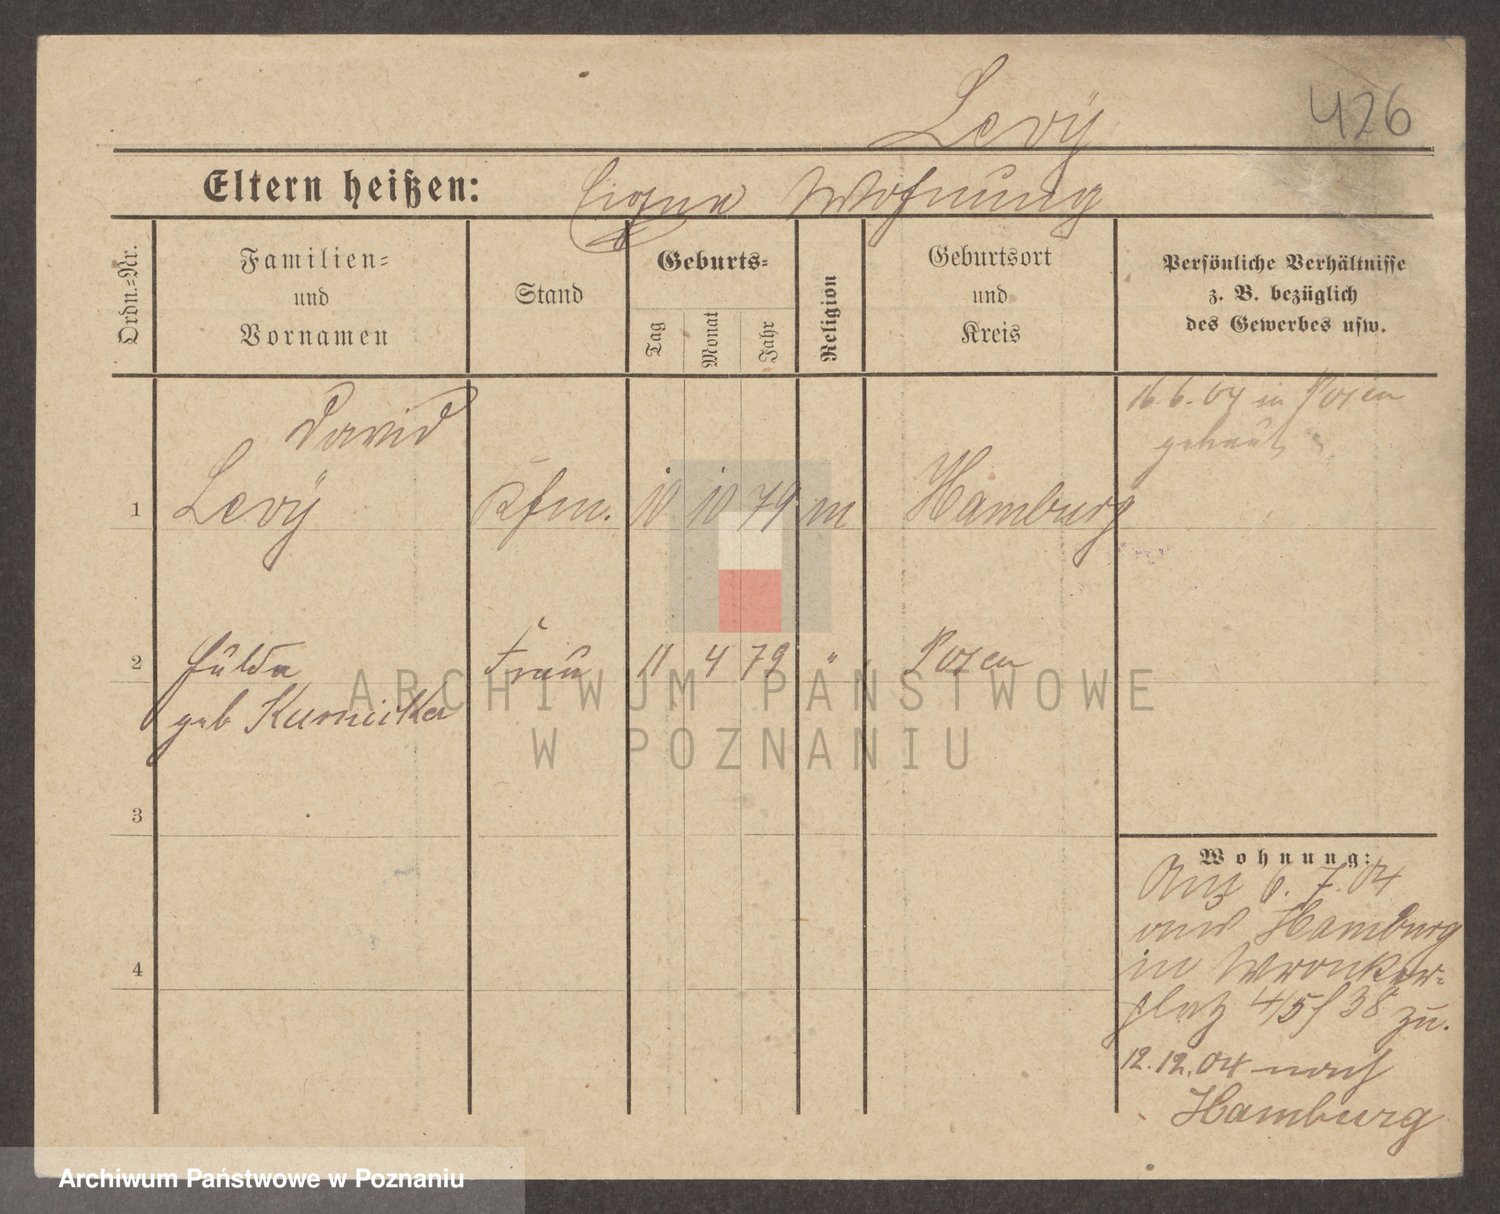 Levÿ
426
Eltern heißen:
Eigene Wohnung
Ordn.-Nr.
Familien-
und
Vornamen
Stand
Geburts-
Tag
Monat
Jahr
Religion
Geburtsort
und
Kreis
Persönliche Verhältnisse
z. B. bezüglich
des Gewerbes usw.
David
1 Levÿ Kfm. 10 10 79 m Hamburg
16.6.04 in Posen
getraut
2 Hulda Frau 11 4 79 " Posen
geb Kurnicker
3
4
Wohnung:
Anz 6. 7. 04
aus Hamburg
in Wronker-
platz 4/5 / 38 zu.
12.12.04 nach
Hamburg
ARCHIWUM PAŃSTWOWE
W POZNANIU
Archiwum Państwowe w Poznaniu